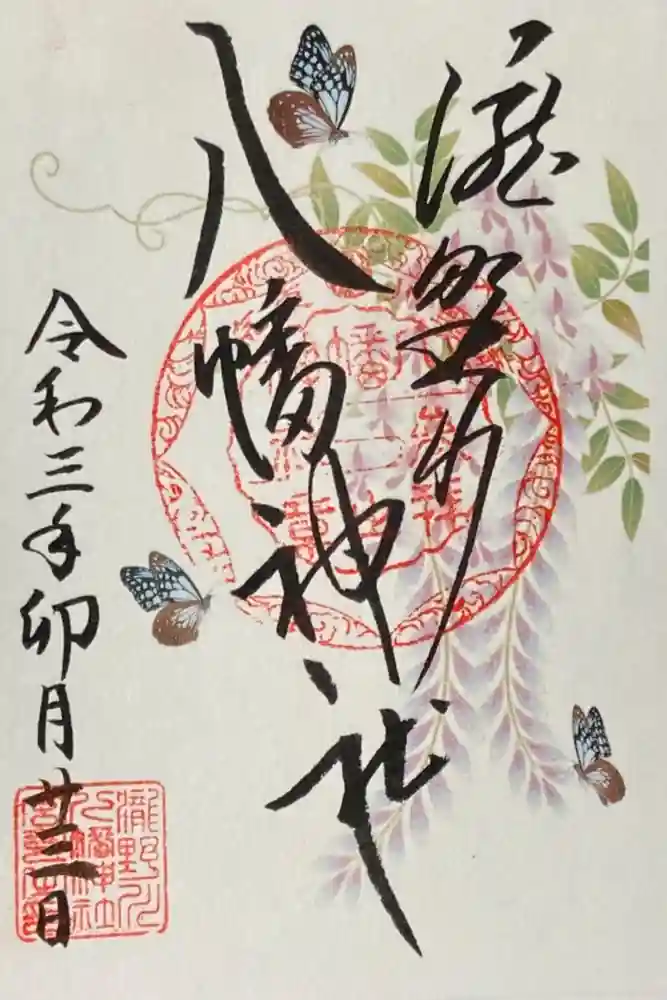 瀧野川
八幡神社
令和三年卯月廿三日
瀧野川
八幡神社